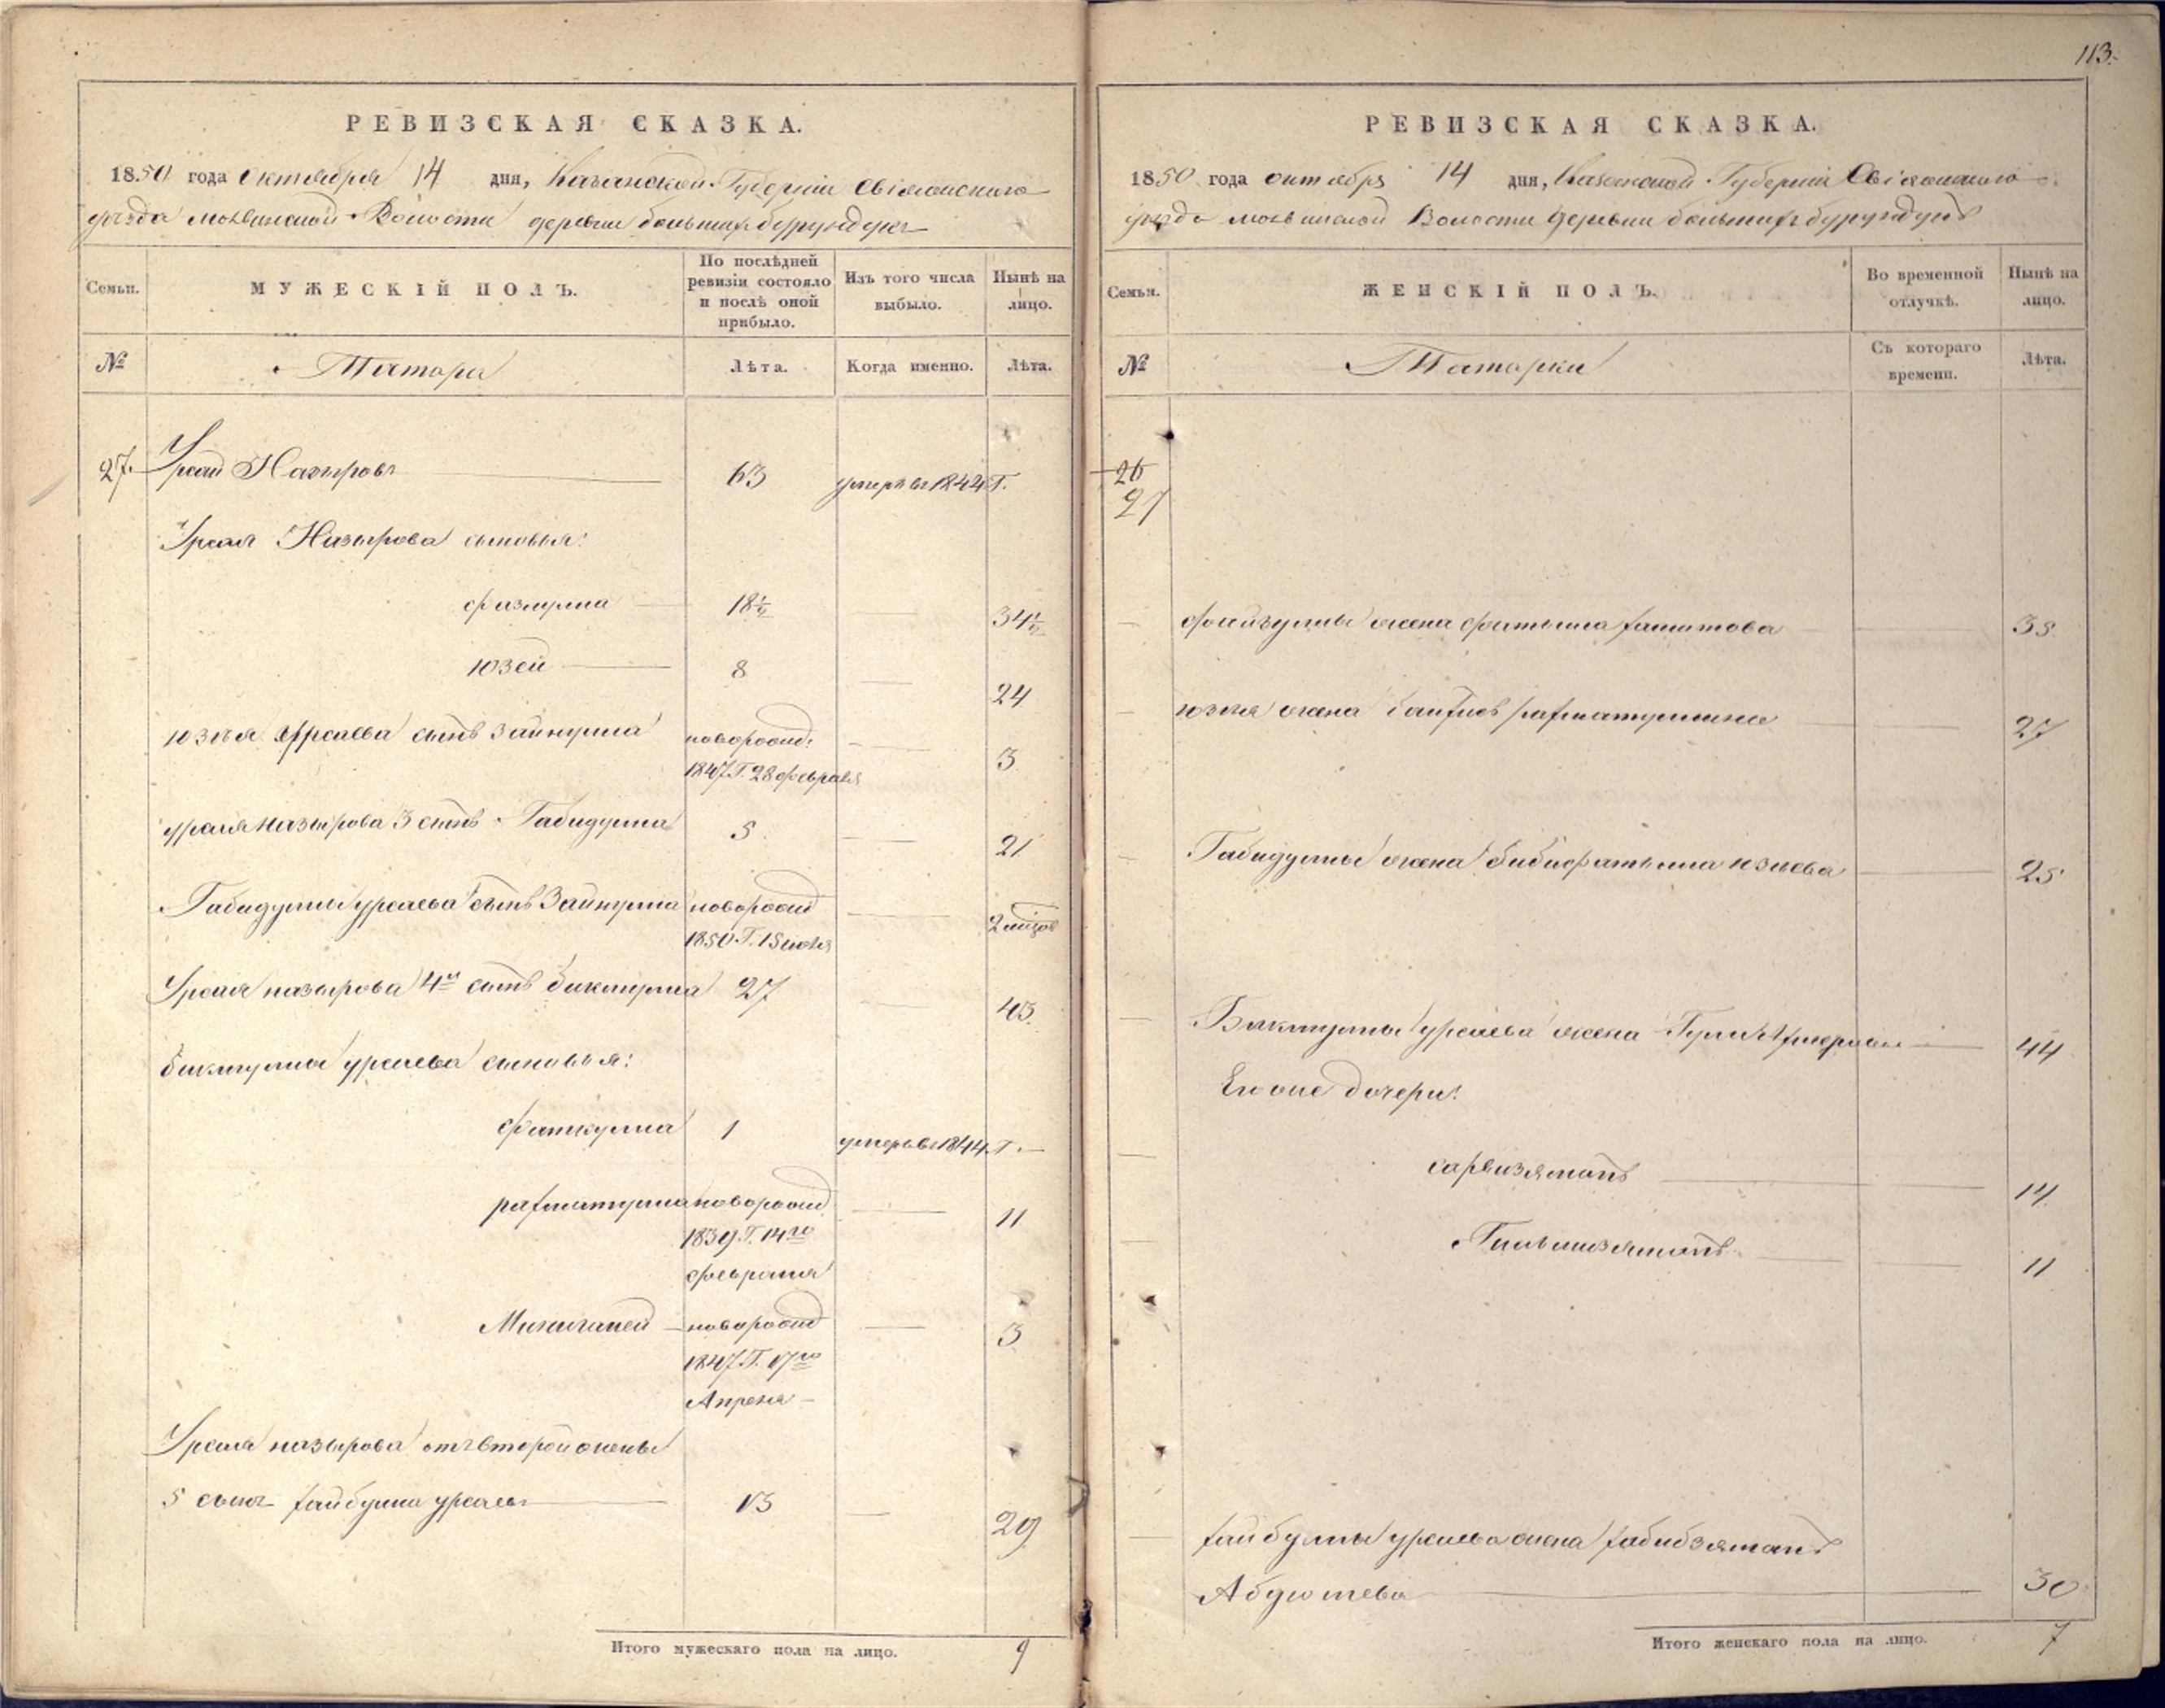 113.
РЕВИЗСКАЯ СКАЗКА.
1850 года октября 14 дня, Казанской Губерніи Свіяжского
уезда Волости деревни большихъ бурундукъ
Семьи. МУЖЕСКІЙ ПОЛЪ. По послѣдней ревизіи состояло и послѣ оной прибыло. Изъ того числа выбыло. Нынѣ на лицо.
№ Татара Лѣта. Когда именно. Лѣта.
27. Урсай Назыровъ 63 умеръ въ 1844 Г.
Урсая Назырова сыновья:
физулла 18½ 34½
юзей 8 24
юзея урсаева сынъ Зайнулла новорожд: 3
1847 Г. 28 февраля
урсая назырова 3 сынъ Габидулла 5 21
Габидуллы урсаева сынъ Зайнулла новорожд 2 мѣсяцов
1850 Г. 15 июля
Урсая назырова 4й сынъ бикмулла 27 43.
бикмуллы урсаева сыновья:
фаткулла 1 умеръ въ 1844 Г.
рахматулла новорожд 11
1839 Г. 14го
февраля
новорожд 3
1847 Г. 17го
Апреля
Урсая назырова отъ второй жены
5 сынъ хайбулла урсаевъ 13 29
Итого мужескаго пола на лицо. 9
РЕВИЗСКАЯ СКАЗКА.
1850 года октября 14 дня, Казанской Губерніи Свіяжского
уезда Волости деревни большихъ бурундукъ
Семьи. ЖЕНСКІЙ ПОЛЪ. Во временной отлучкѣ. Нынѣ на лицо.
№ Татарки Съ котораго времени. Лѣта.
26
27
файзуллы жена фатыма хамитова 35
юзея жена рахматуллина 27
Габидуллы жена бибифатыма юзеева 25
Бикмуллы урсаева жена 44
Его же дочери:
сарвизямалъ 14
11
хайбуллы урсаева жена хабибзямалъ
Абдюшева 30
Итого женскаго пола на лицо. 7